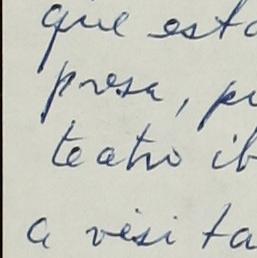 que esta
prosa, pu
teatro ib
a visita